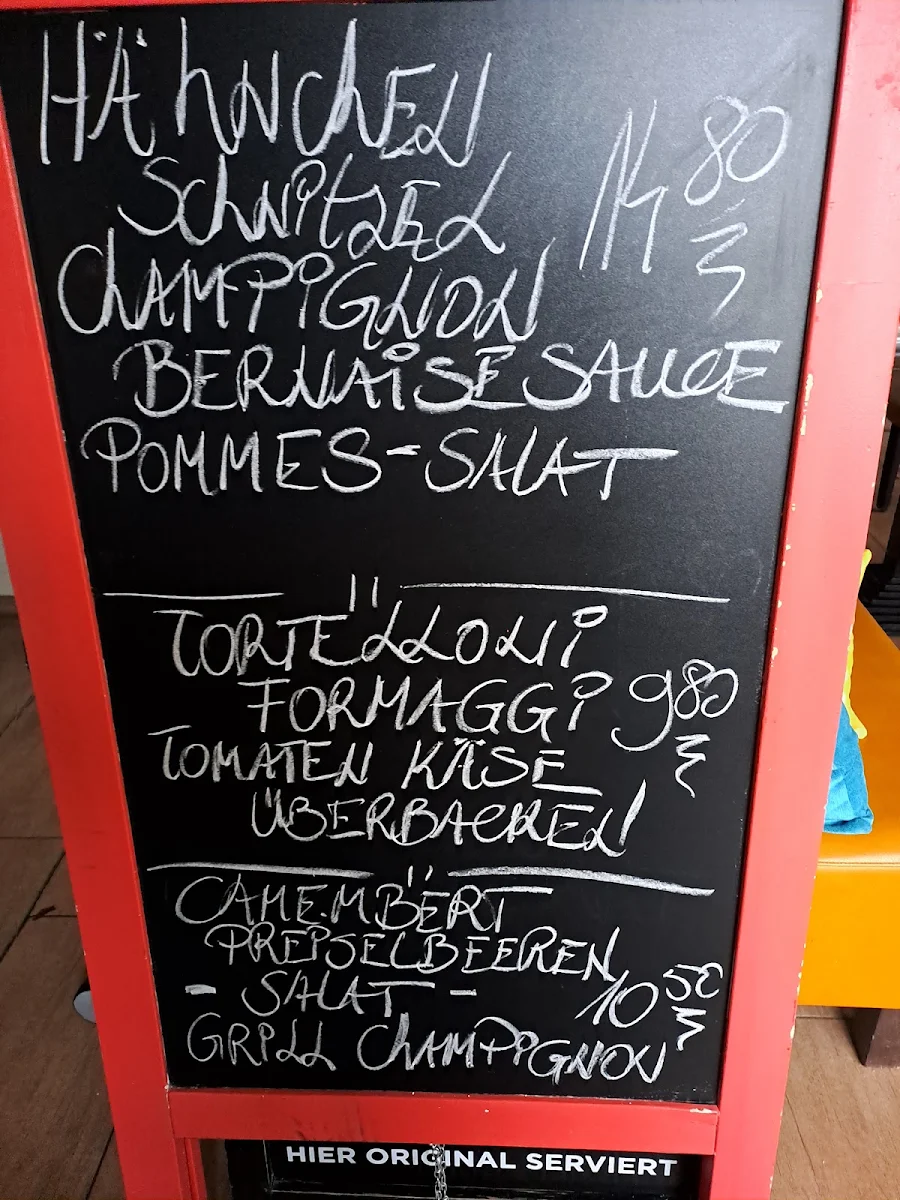 HÄHNCHEN
SCHNITZEL 14 80
CHAMPIGNON
BERNAISE SAUCE
POMMES - SALAT
TORTELLONI
FORMAGGI 9 80
TOMATEN KÄSE
ÜBERBACKEN
CAMEMBERT
PREISELBEEREN
- SALAT - 10 50
GRILL CHAMPIGNON
HIER ORIGINAL SERVIERT